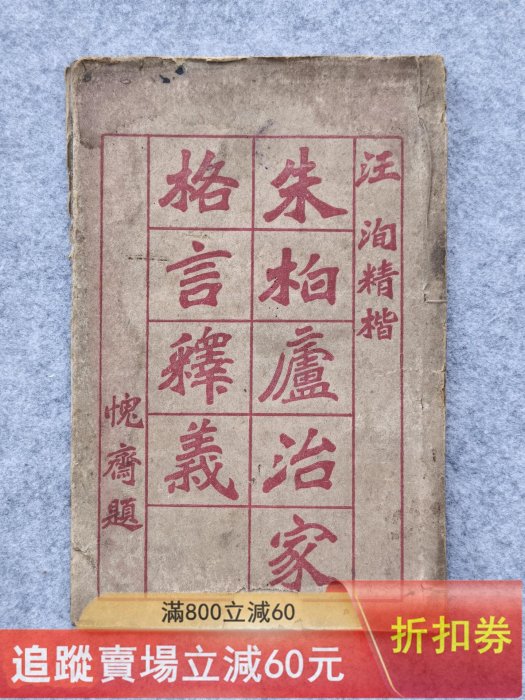 汪洵精楷
朱柏廬治家
格言釋義
愧齋題
滿800立減60
追蹤賣場立減60元
折扣券